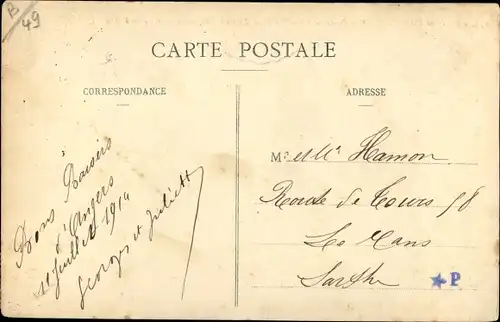 B
49
CARTE POSTALE
CORRESPONDANCE
ADRESSE
Bons Baisers
d'Angers
11 Juillet 1914
Georges et Juliette
M. et Mme Hamon
Route de Tours 98
Le Mans
Sarthe
P